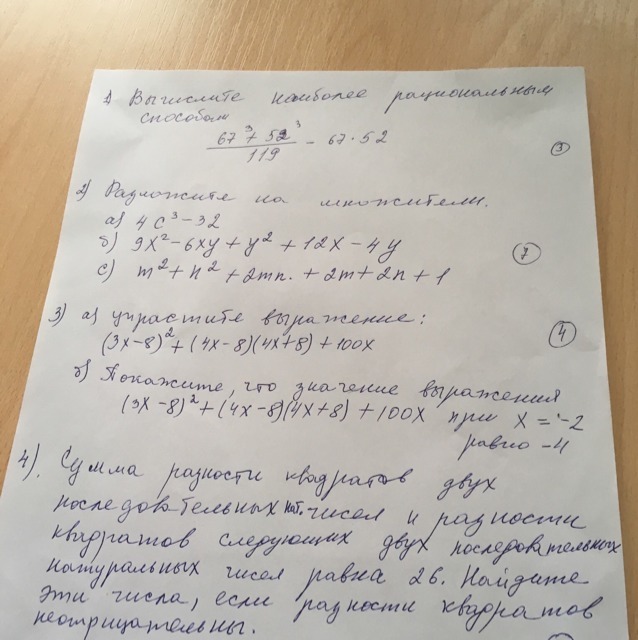 1) Вычислите наиболее рациональным
способом
67³ + 52³
119
- 67·52
③
2) Разложите на множители.
а) 4c³-32
б) 9x²-6xy+y²+12x-4y
⑦
c) m²+n²+2mn.+2m+2n+1
3) а) упрастите выражение:
④
(3x-8)²+(4x-8)(4x+8)+100x
б) Покажите, что значение выражения
(3x-8)²+(4x-8)(4x+8)+100x при x=-2
равно -4
4). Сумма разности квадратов двух
последовательных нат. чисел и разности
квадратов следующих двух последовательных
натуральных чисел равна 26. Найдите
эти числа, если разности квадратов
неотрицательны.